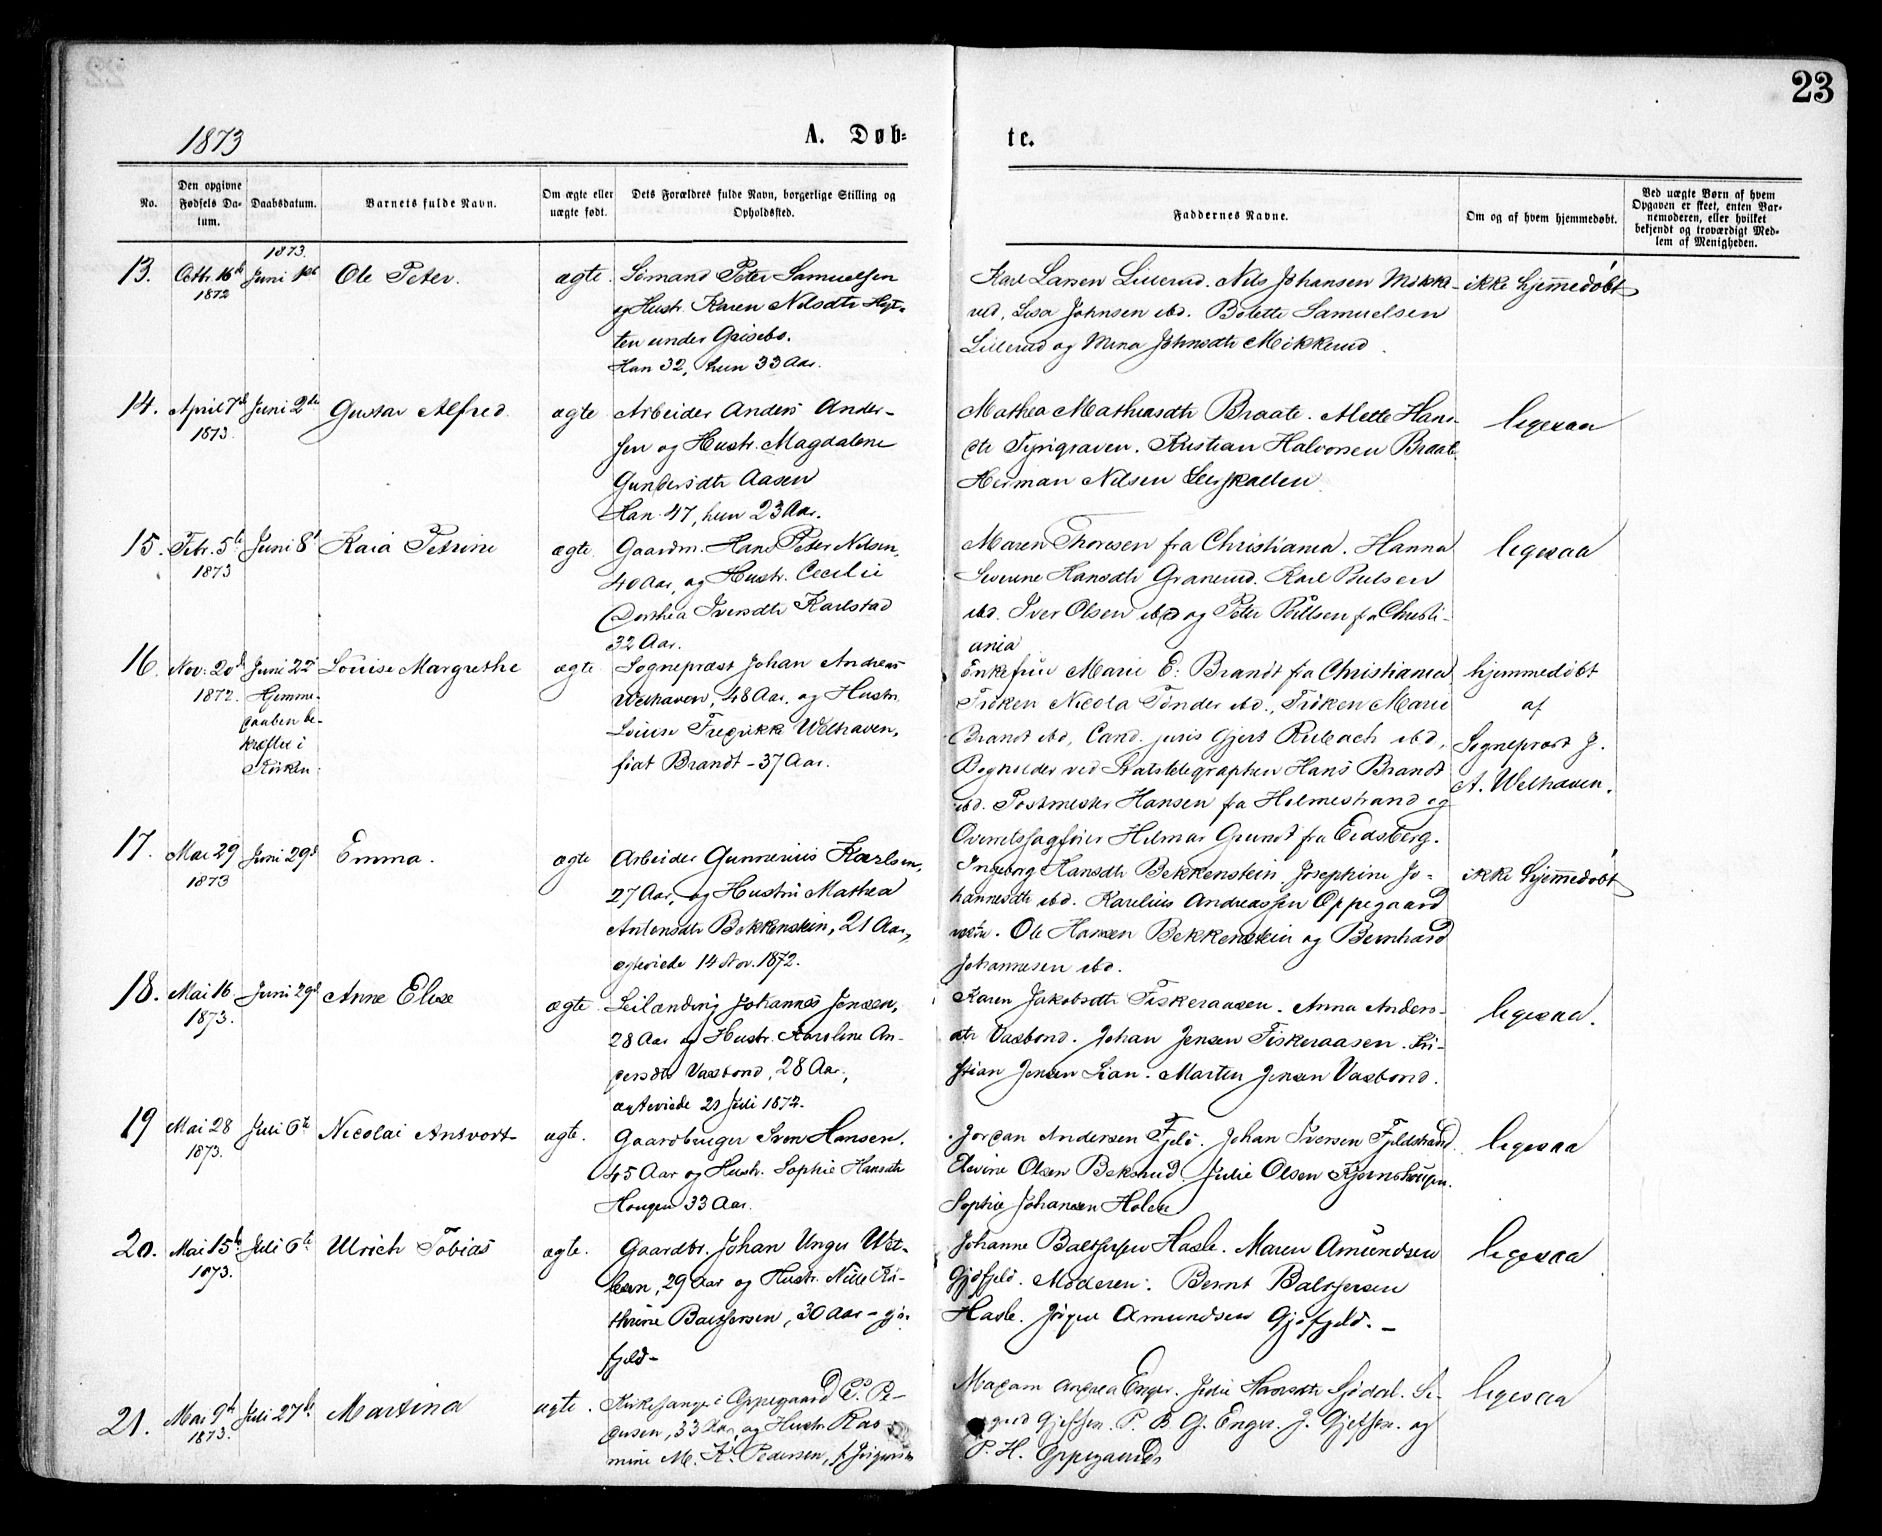 23
1873
A. Døb-
te.
No.
Den opgivne Fødsels Da-tum.
Daabsdatum.
Barnets fulde Navn.
Om ægte eller uægte født.
Dets Forældres fulde Navn, borgerlige Stilling og Opholdssted.
Faddernes Navne.
Om og af hvem hjemmedøbt.
Ved uægte Børn af hvem Opgaven er skeet, enten Bar-nemoderen, eller hvilket bekjendt og troværdigt Med-lem af Menigheden.
1873.
13. Octbr. 16de 1872 Juni 1ste Ole Peter. ægte.
Sømand Peter Samuelsen
og Hustr. Karen Nilsdtr
ten under Grisebo.
Han 32, hun 33 Aar.
Karl Larsen Lillerud. Nils Johansen Mikke-
rud, Lisa Johnsen ibd. Bolette Samuelsen
Lillerud og Mina Johnsdtr Mikkerud.
ikke hjemmedøbt
14. April 7de 1873. Juni 2den Gustav Alfred ægte
Arbeider Anders Ander-
sen og Hustr. Magdalene
Gundersdtr Aasen
Han 47, hun 23 Aar.
Mathea Mathiasdtr Braate. Alette Hans-
dtr Tyrigraven. Kristian Halvorsen Braate
Herman Nilsen
ligesaa
15. Febr. 5te 1873 Juni 8de Kaia Petrine ægte
Gaardm. Hans Peter Nilsen,
40 Aar, og Hustr. Cecilie
Dorthea Iversdtr Karlstad
32 Aar.
Maren Thoresen fra Christiania. Hanna
Severine Hansdtr Granerud. Karl Paulsen
ibd. Iver Olsen ibd og Peter Paulsen fra Christi-
ania
ligesaa
16. Nov. 20de 1872. Juni 22de
Hjemme-
daaben be-
kræftet i
Kirken.
Louise Margrethe ægte
Sognepræst Johan Andreas
Welhaven, 48 Aar, og Hustr.
Louise Fredrikke Welhaven,
født Brandt - 37 Aar.
Enkefrue Marie E. Brandt fra Christiania
Frøken Nicola Tønder ibd., Frøken Marie
Brandt ibd, Cand. juris Gjert Rubach ibd,
Bogholder ved Statstelegraphen Hans Brandt
ibd. Postmester Hansen fra Holmestrand og
Overretssagfører Hilmar Grundt fra Eidsberg.
hjemmedøbt
af
Sognepræst J.
A. Welhaven.
17. Mai 29 1873 Juni 29de Emma. ægte
Arbeider Gunnerius Karlsen,
27 Aar, og Hustru Mathea
Antonsdtr Bekkenstein, 21 Aar,
ægteviede 14 Nov. 1872.
Ingeborg Hansdtr Bekkenstein, Josephine Jo-
hannesdtr ibd. Karelius Andreassen Oppegaard
Ole Hansen Bekkenstein og Bernhard
Johannesen ibd.
ikke hjemmedøbt
18. Mai 16 1873. Juni 29de Anne Elise ægte
Leilænding Johannes Jensen,
28 Aar og Hustr. Karoline An-
dersdtr Vasbond, 28 Aar,
ægteviede 21 Juli 1872.
Karen Jakobsdtr Fiskeraasen. Anna Anders-
dtr Vasbond. Johan Jensen Fiskeraasen. Kri-
stian Jensen Lian. Martin Jensen Vasbond.
ligesaa.
19 Mai 28 1873. Juli 6te Nicolai Antvort ægte.
Gaardbruger Sven Hansen,
45 Aar og Hustr. Sophie Hansdtr
Hougen 33 Aar.
Jordan Andersen Fjeld. Johan Iversen Fjeldstrand
Elevine Olsen Beksrud. Julie Olsen
Sophie Johansen Holen
ligesaa
20. Mai 15de 1873. Juli 6te Ulrich Tobias ægte.
Gaardbr. Johan Unger Wet-
lesen, 29 Aar og Hustr. Nille Ka-
thrine Baltzersen, 30 Aar - Gjø-
fjeld -
Johanne Baltzersen Hasle. Maren Amundsen
Gjøfjeld. Moderen. Bernt Baltzersen
Hasle. Jørgen Amundsen Gjøfjeld. -
ligesaa
21. Mai 9de 1873. Juli 27de Martina ægte.
Kirkesanger i Oppegaard P. Pe-
dersen, 33 Aar, og Hustr. Ras-
mine M. K. Pedersen, f. Jørgensen
Madam Andrea Enger. Julie Hansdtr Sjødal. Si-
gurd Gjefsen. P. B. G. Enger. J. Gjefsen. og
P. H. Oppegaard
ligesaa